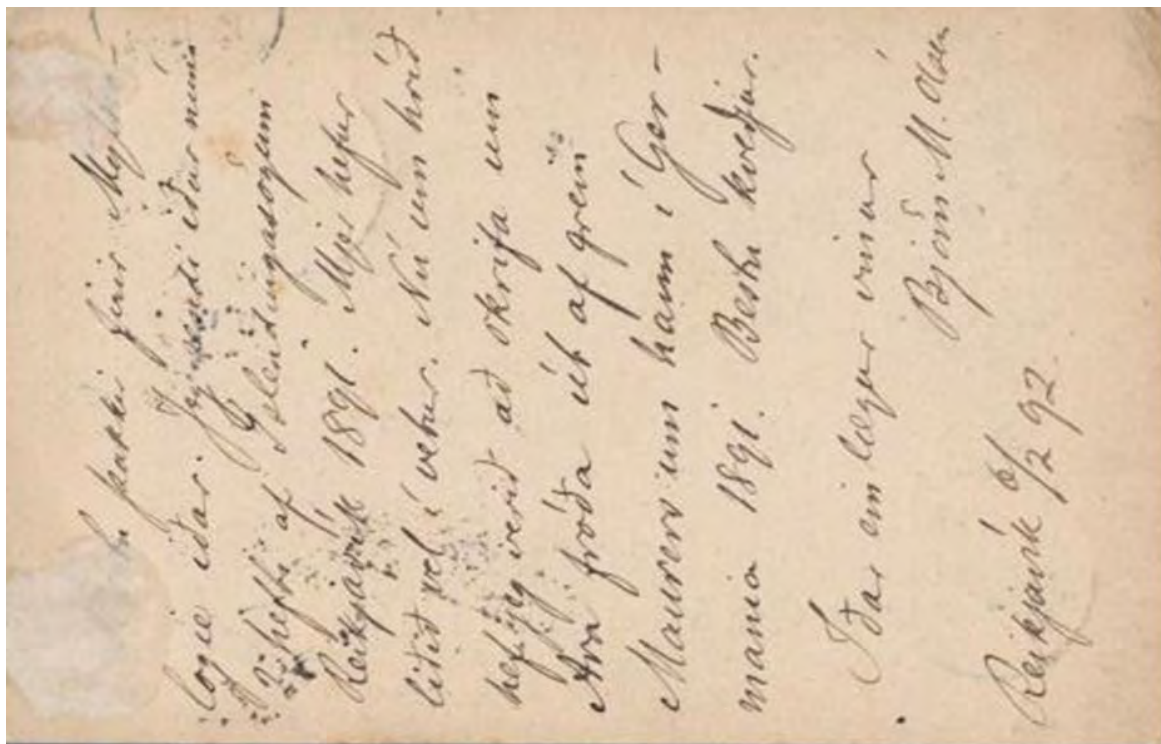 þakkir firir Mytho-
logie iðar. Jeg sendi iður núna
2 hefti af Íslendingasögum
Reikjavík 1891. Mjer hefur
liðið vel í vetur. Nú um hríð
hef jeg verið að skrifa um
Ara fróða út af grein
Maurers um hann í Ger-
mania 1891. Bestu kveðjur.
Iðar einlægur vinur
Björn M. Olsen
Reikjavík 6/2 92.